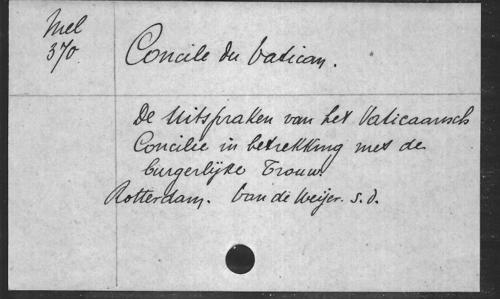 Mel
370.
Concile du Vatican.
De Uitspraken van het Vaticaansch
Concilie in betrekking met de
burgerlijke Trouw.
Rotterdam. Van de Weijer. s.d.